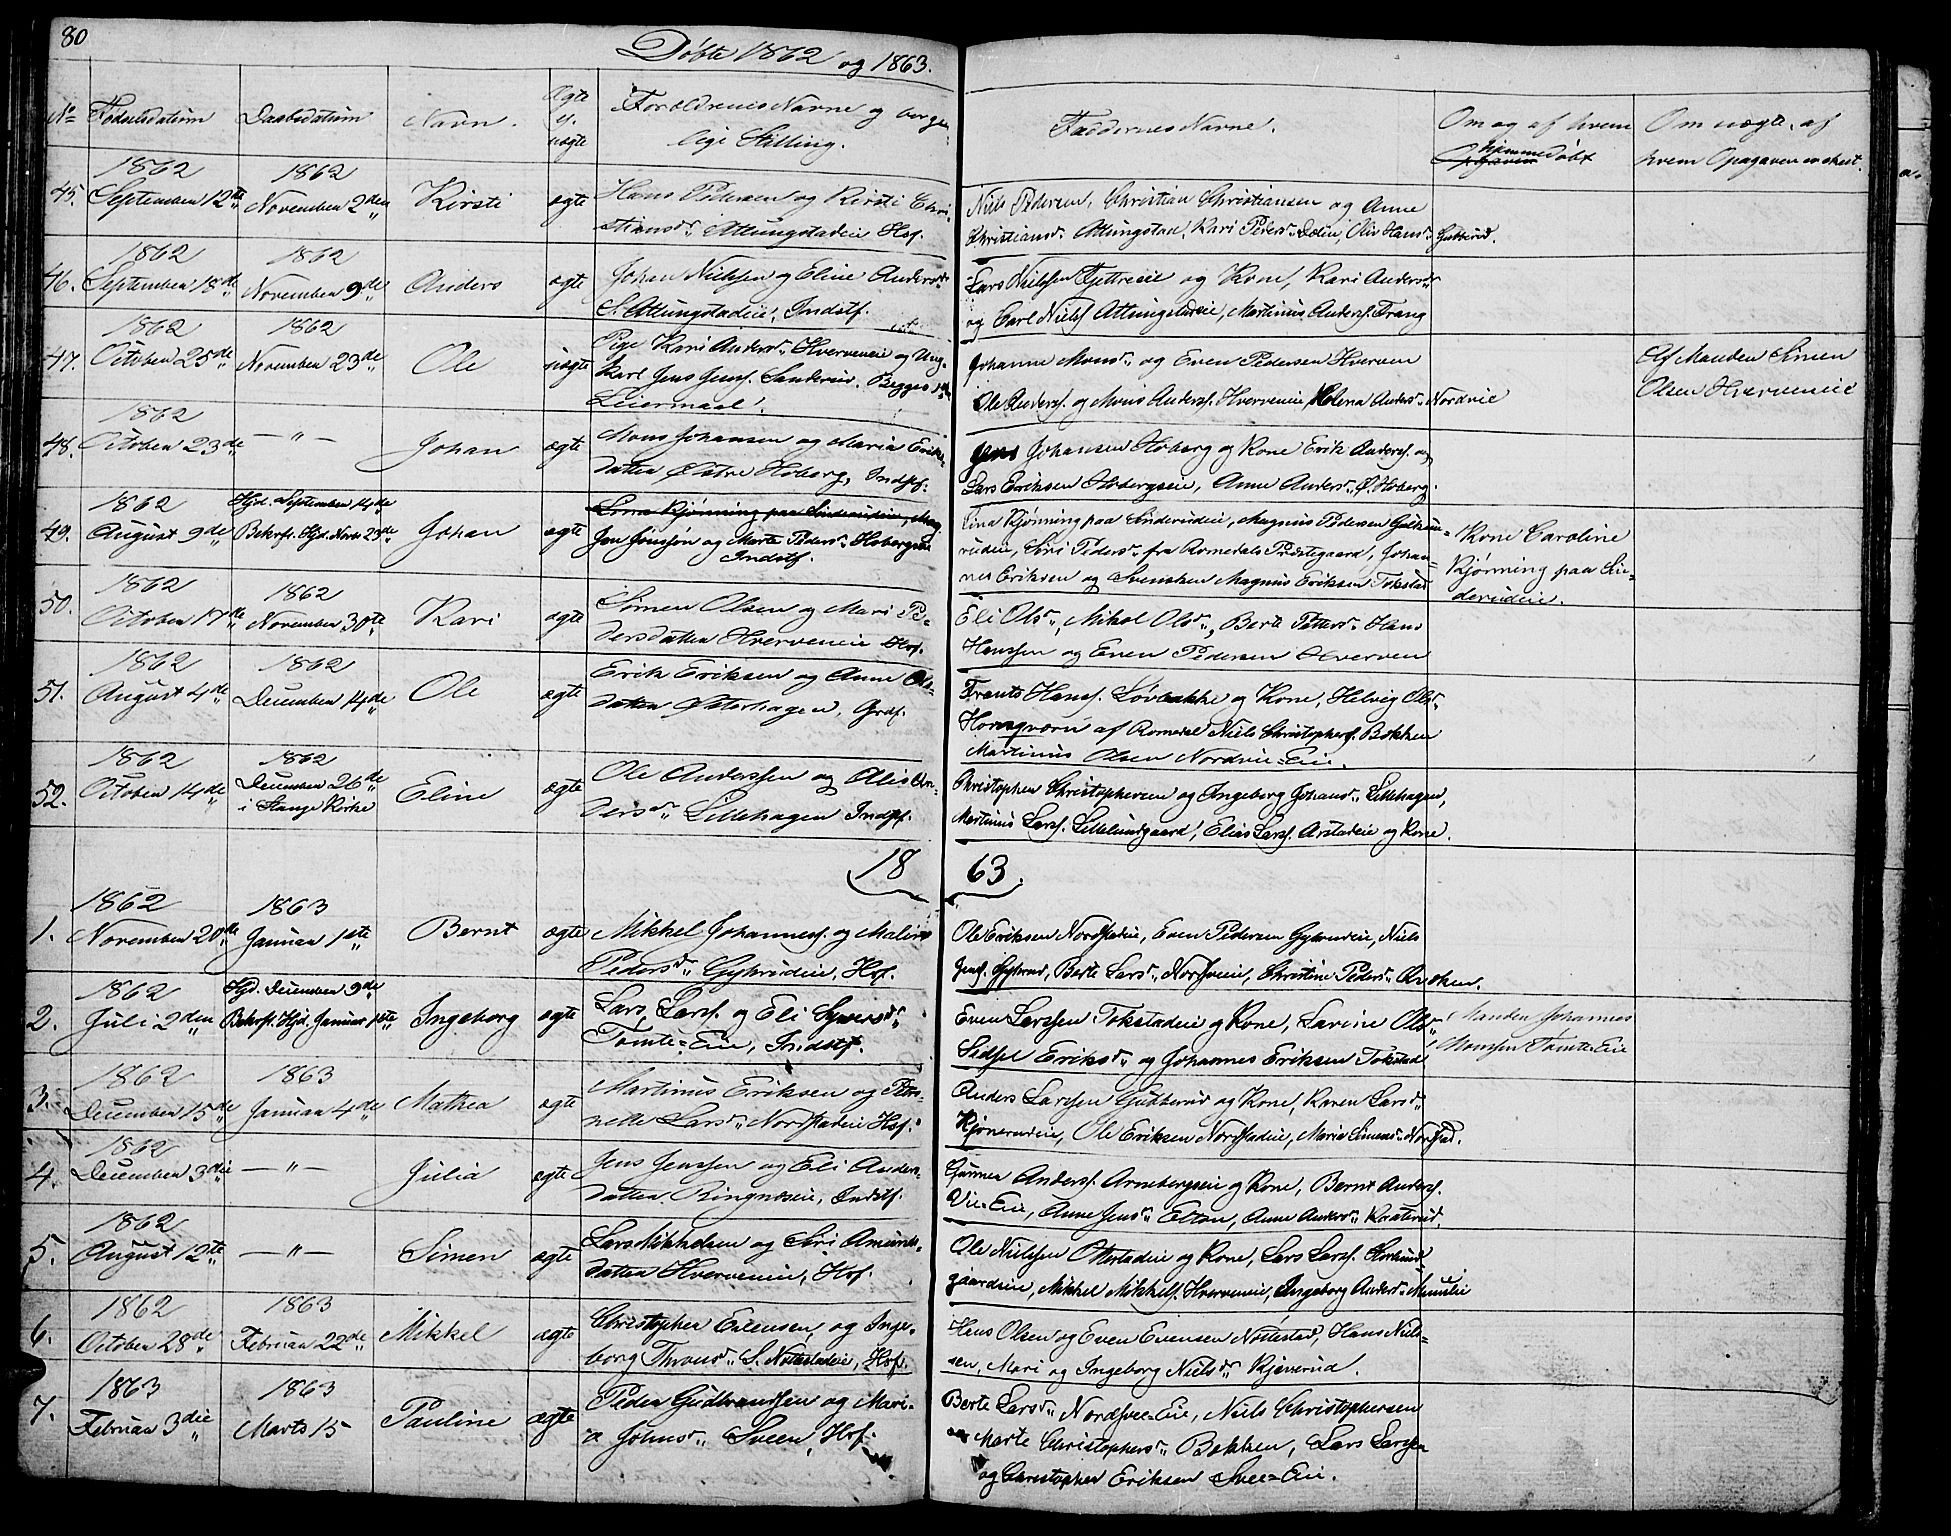 80
Døbte 1862 og 1863.
No Fødselsdatum Daabsdatum Navn. Ægte el. uægte Forældrenes Navne og borgerlige Stilling. Faddernes Navne. Om og af hvem hjemmedøbt Om uægte, af hvem Opgaven er skeet.
1862 1862
45. September 12te November 2den Kirsti ægte Hans Pedersen og Kirsti Chri-
stiansd. Attungstadeie Hsf.
Niels Pedersen, Christian Christiansen og Anne
Christiansd. Attungstad, Kari Pedersd. Dælin, Oliv Hansd. Gubberud.
1862 1862
46. September 18de November 9de Anders ægte Johan Nielssen og Eline Andersd.
S. Attungstadeie, Indstf.
Lars Nielssen Tjettreeie og Kone, Kari Andersd.
og Carl Nielsf. Attungstadeie, Martinus Andersf. Trang
1862 1862
47. October 25de November 23de Ole uægte Pige Kari Andersd. Hverveneie og Ung-
karl Jens Jensf. Sanderud. Begges 1ste
Leiermaal.
Johanne Monsd. og Even Pedersen Hverven
Ole Andersf. og Mons Andersf. Hverveneie, Helena Andersd. Nordvie
Af Manden Simen
Olsen Hverveneie
1862
48. October 23de — " — Johan ægte Mons Johansen og Maria Eriks-
datter Østre Hoberg, Indstf.
Jens Johansen Hoberg og Kone Erik Andersf. og
Lars Eriksen Hobergseie, Anne Andersd. Ø. Hoberg.
1862 Hjd. September 14de
49. August 9de Bekrft. Hjd. Novr 23de Johan ægte
Jon Jonssen og Marte Pedersd. Hobergseie
Indstf.
Lina Kjønning paa Sinderudeie, Magnus Pedersen
rudeie, Siri Pedersd. fra Romedals Præstegaard, Johan-
nes Eriksen og Svensken Magnus Eriksen Tokstad
Kone Caroline
Kjønning paa Sin-
derudeie.
1862 1862
50. October 17de November 30te Kari ægte Simen Olsen og Mari Pe-
dersdatter Hverveneie Hsf.
Eli Olsd., Mikol Olsd., Berte Pettersd. Hans
Hanssen og Even Pedersen Hverven
1862 1862
51. August 4de December 14de Ole ægte Erik Eriksen og Anne Ols-
datter Østerhagen, Grdf.
Frants Hansf. Løvbakke og Kone, Helvig Olsd.
Hornsqværn af Romedal Niels Christophersf. Bakken
Martinus Olsen Nordvie-Eie.
1862 1862
52. October 14de December 26de
i Stange Kirke Eline ægte Ole Anderssen og Olis An-
dersd. Lillehagen Indstf.
Christopher Christophersen og Ingeborg Johansd. Lillehagen,
Martinus Larsf. Lillelundgaard, Elias Larsf. Arstadeie og Kone.
18 63.
1862 1863
1. November 20de Januar 1ste Bernt ægte Mikkel Johannesf. og Maline
Pedersd. Gykrudeie, Hsf.
Ole Eriksen Nordstadeie, Even Pedersen Gykrudeie, Niels
Jensf. Gykrud, Berte Larsd. Nordsveeie, Christine Pedersd.
1862 Hjd. December 9de
2. Juli 2den Bekrft. Hjd. Januar 1ste Ingeborg ægte Lars Larsf. og Eli Syversd.
Tomte-Eie, Indstf.
Even Larssen Tokstadeie og Kone, Larine Olsd.
Sidsel Eriksd. og Johannes Eriksen Tokstad
Manden Johannes
Monssen Tomte-Eie
1862 1863
3. December 15de Januar 4de Mathea ægte Martinus Eriksen og Per-
nelle Larsd. Nordstadeie Hsf.
Anders Larssen Gubberud og Kone, Karen Larsd.
Kjønerudeie, Ole Eriksen Nordstadeie, Marie Simensd. Nordstad.
1862
4. December 3die — " — Julia ægte Jens Jenssen og Eli Anders-
datter Ringnæseie, Indstf.
Gunner Andersf. Arnebergseie og Kone, Bernt Andersf.
Vie-Eie, Anne Jensd. Elton, Anne Andersd. Kraterud.
1862
5. August 12te — " — Simen ægte Lars Mikkelsen og Siri Amunds-
datter Hverveneie, Hsf.
Ole Nielssen Ottestadeie og Kone, Lars Larsf.
gaardeie, Mikkel Mikkelsf. Hverveneie, Ingeborg Andersd.
1862 1863
6. October 28de Februar 22de Mikkel ægte Christopher Evensen, og Inge-
borg Thronsd. S. Nøttestadeie, Hsf.
Hans Olsen og Even Evensen Nøttestad, Hans Niels-
sen, Mari og Ingeborg Nielsd. Kjeverud.
1863 1863
7. Februar 3die Marts 15 Pauline ægte Peder Gudbrandsen og Mari-
a Johnsd. Sveen, Hsf.
Berte Larsd. Nordsvee-Eie, Niels Christophersen
Marte Christophersd. Bakken, Lars Larssen
og Christopher Eriksen Svee-Eie.